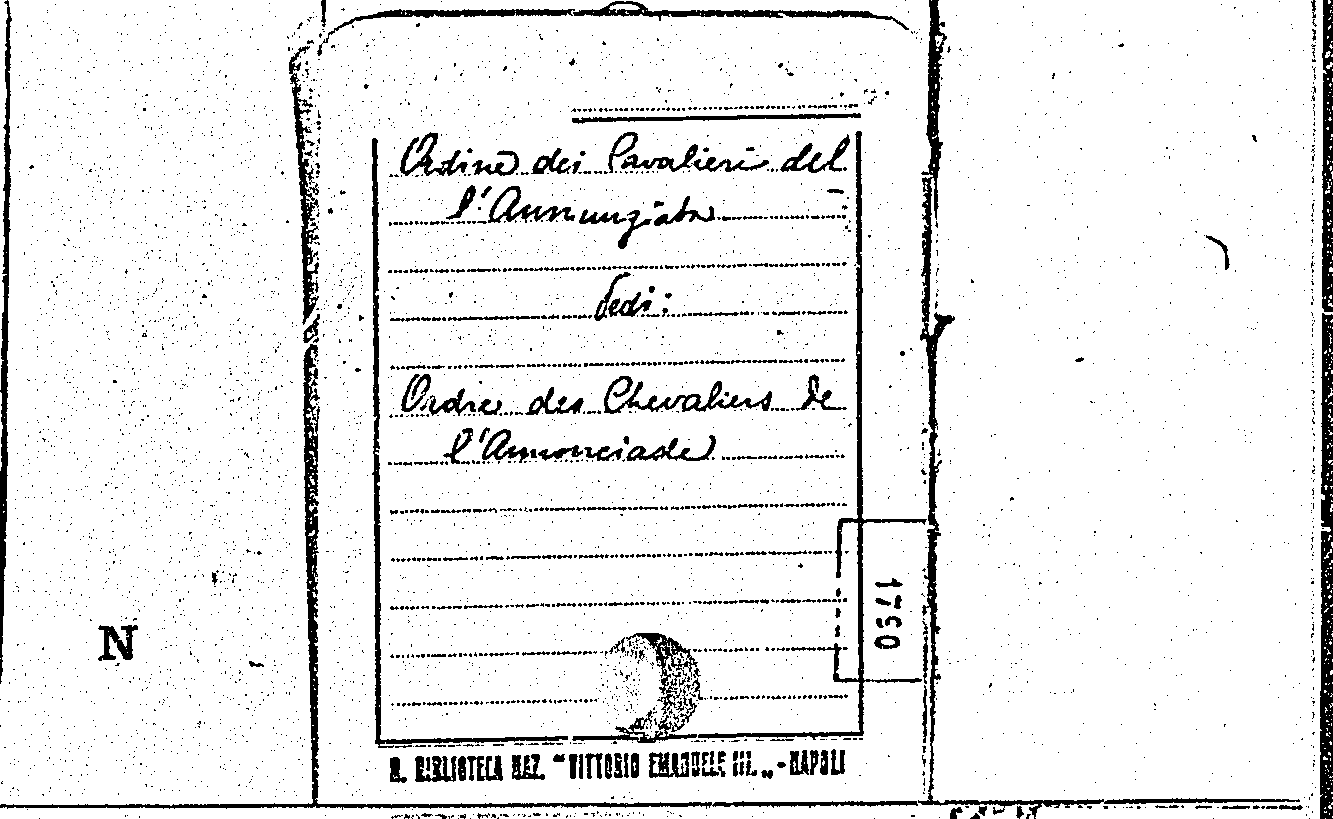 Ordine dei Cavalieri del
l'Annunziata
Vedi:
Ordre des Chevaliers de
l'Annonciade
1790
N
R. BIBLIOTECA NAZ. "VITTORIO EMANUELE III. „ - NAPOLI